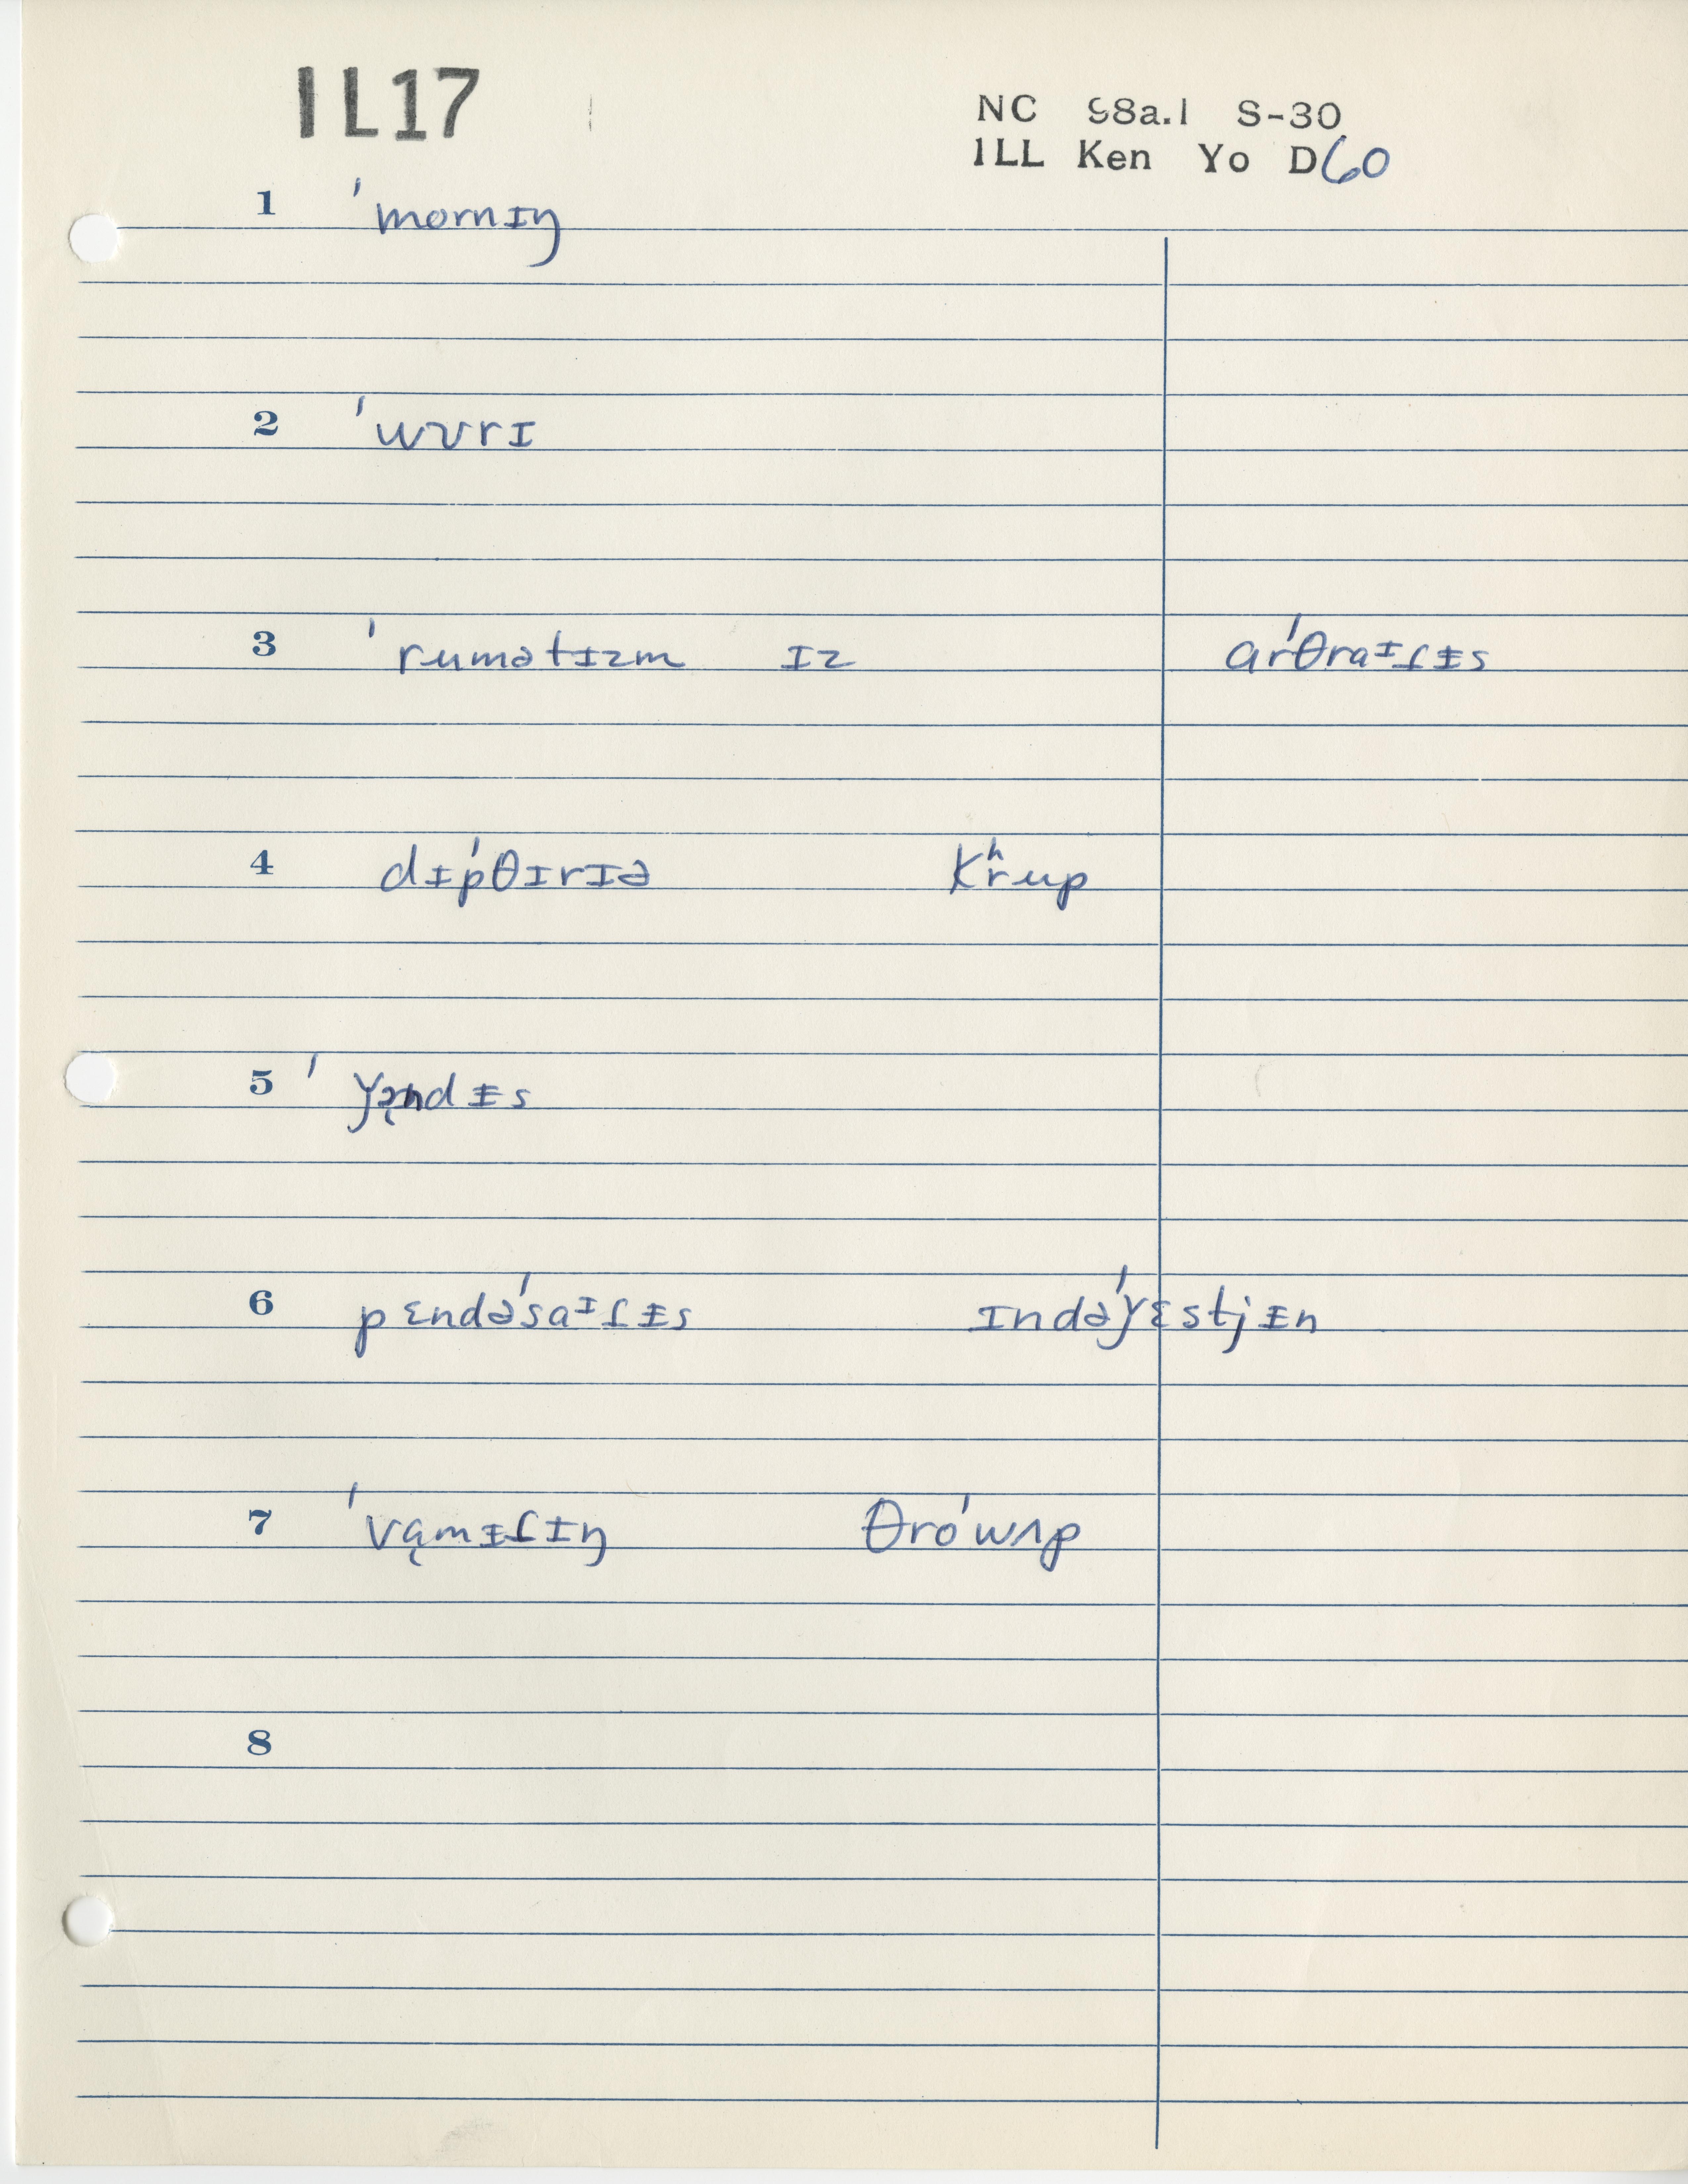 IL17
NC 98a.1 S-30
ILL Ken Yo D60
1 ˈmornɪŋ
2 ˈwʊrɪ
3 ˈrumətɪzm ɪz arˈθraɪɾɪ̵s
4 dɪ̵pˈθɪrɪə kʰrup
5 ˈɣə̨ndɪ̵s
6 pɛndəˈsaɪɾɪ̵s ɪndəˈɣɛstjɪ̵n
7 ˈvɑ̨mɪ̵ɾɪŋ θroˈwʌp
8